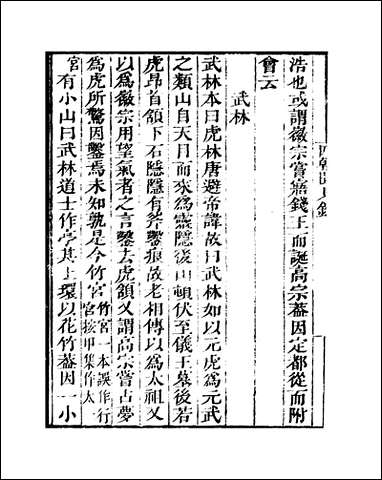 四朝聞見錄
浩也或謂徽宗嘗夢錢王而誕高宗葢因定都從而附
會云
武林
武林本曰虎林唐避帝諱故曰武林如以元虎爲元武
之類山自天目而來爲靈隱後山頓伏至儀王墓後若
虎昂首頷下石隱隱有斧鑿痕故老相傳以爲太祖又
以爲徽宗用望氣者之言鑿去虎頷又謂高宗嘗占夢
爲虎所驚因鑿焉未知孰是今竹宮
竹宮一本誤作行
宮按甲集作太
宮有小山曰武林道士作亭其上環以花竹葢因一小